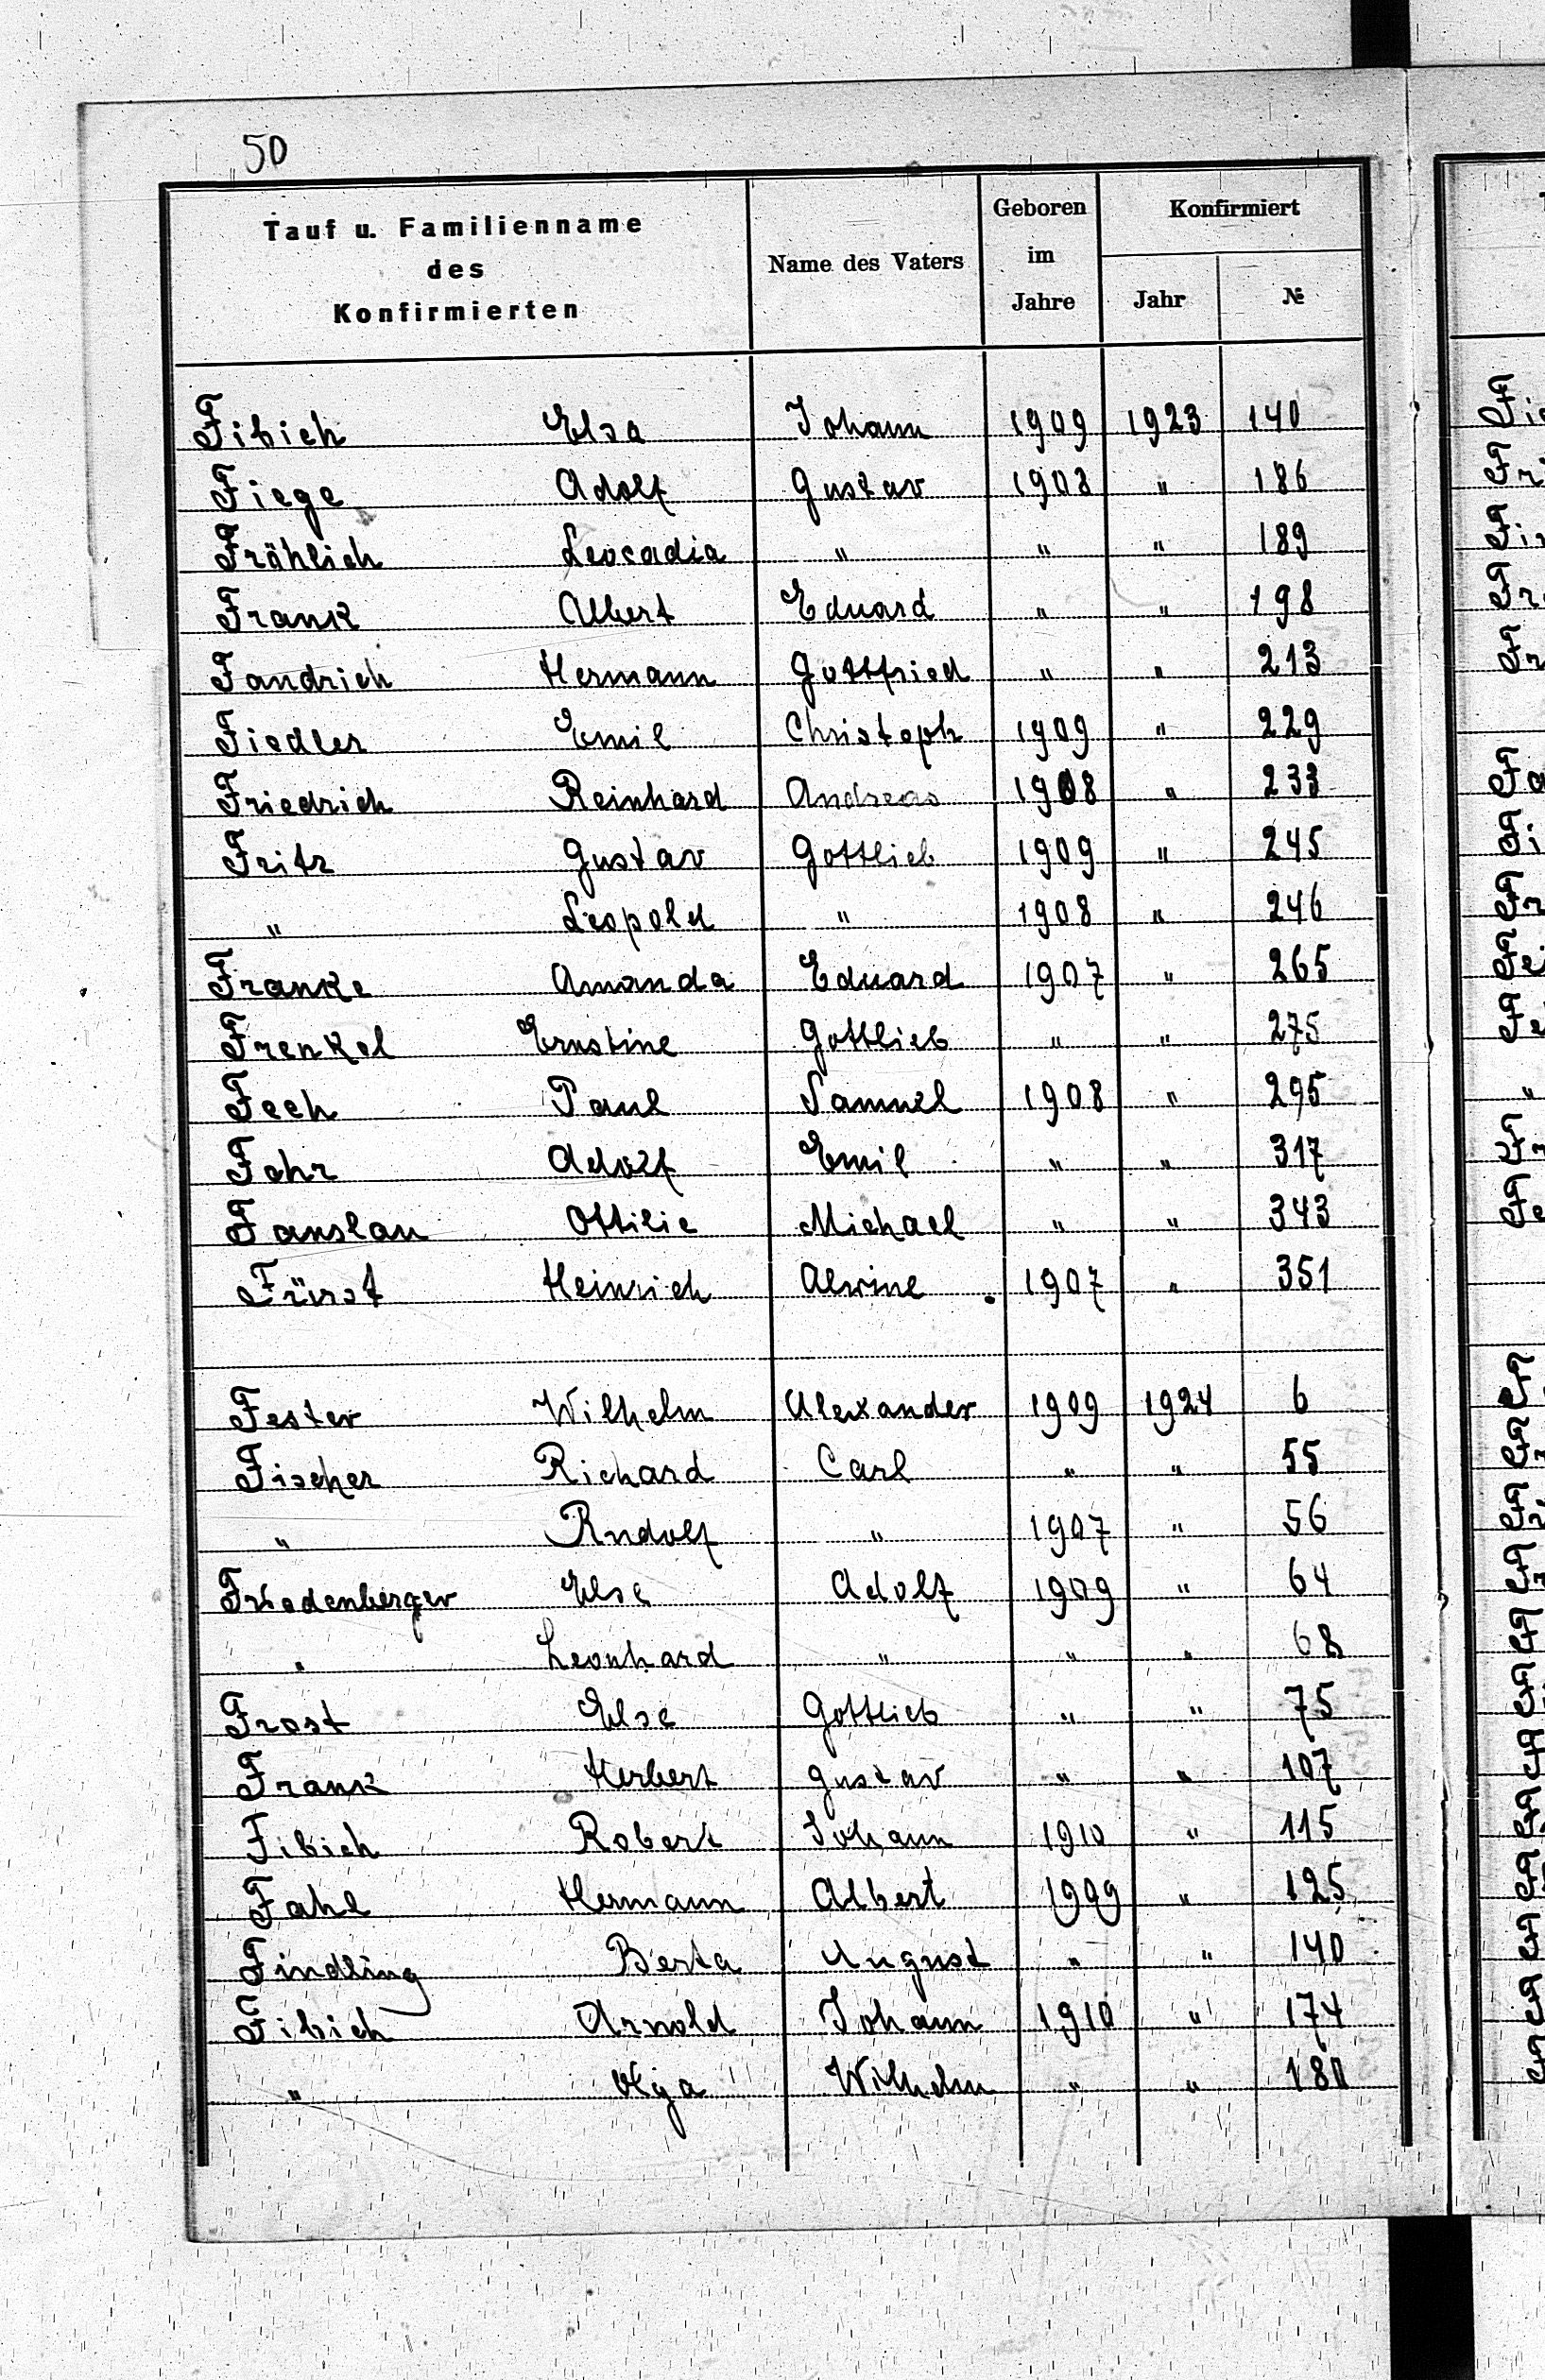 50
Tauf u. Familienname des Konfirmierten | Name des Vaters | Geboren im Jahre | Konfirmiert Jahr | №
Fibich Elsa Johann 1909 1923 140
Fiege Adolf Gustav 1908 " 186
Frählich Leocadia " " " 189
Frank Albert Eduard " " 198
Fandrich Hermann Gottfried " " 213
Fiedler Emil Christoph 1909 " 229
Friedrich Reinhard Andreas 1908 " 233
Fritz Gustav Gottlieb 1909 " 245
" Leopold " 1908 " 246
Franke Amanda Eduard 1907 " 265
Frenkel Ernstine Gottlieb " " 275
Fech Paul Samuel 1908 " 295
Fehr Adolf Emil " " 317
Fanslau Ottilie Michael " " 343
Fürst Heinrich Alwine 1907 " 351
Fester Wilhelm Alexander 1909 1924 6
Fischer Richard Carl " " 55
" Rudolf " 1907 " 56
Friedenberger Else Adolf 1909 " 64
" Leonhard " " " 68
Frost Else Gottlieb " " 75
Frank Herbert Gustav " " 107
Fibich Robert Johann 1910 " 115
Fahl Hermann Albert 1909 " 125
Findling Berta August " " 140
Fibich Arnold Johann 1910 " 174
" Olga Wilhelm " " 180